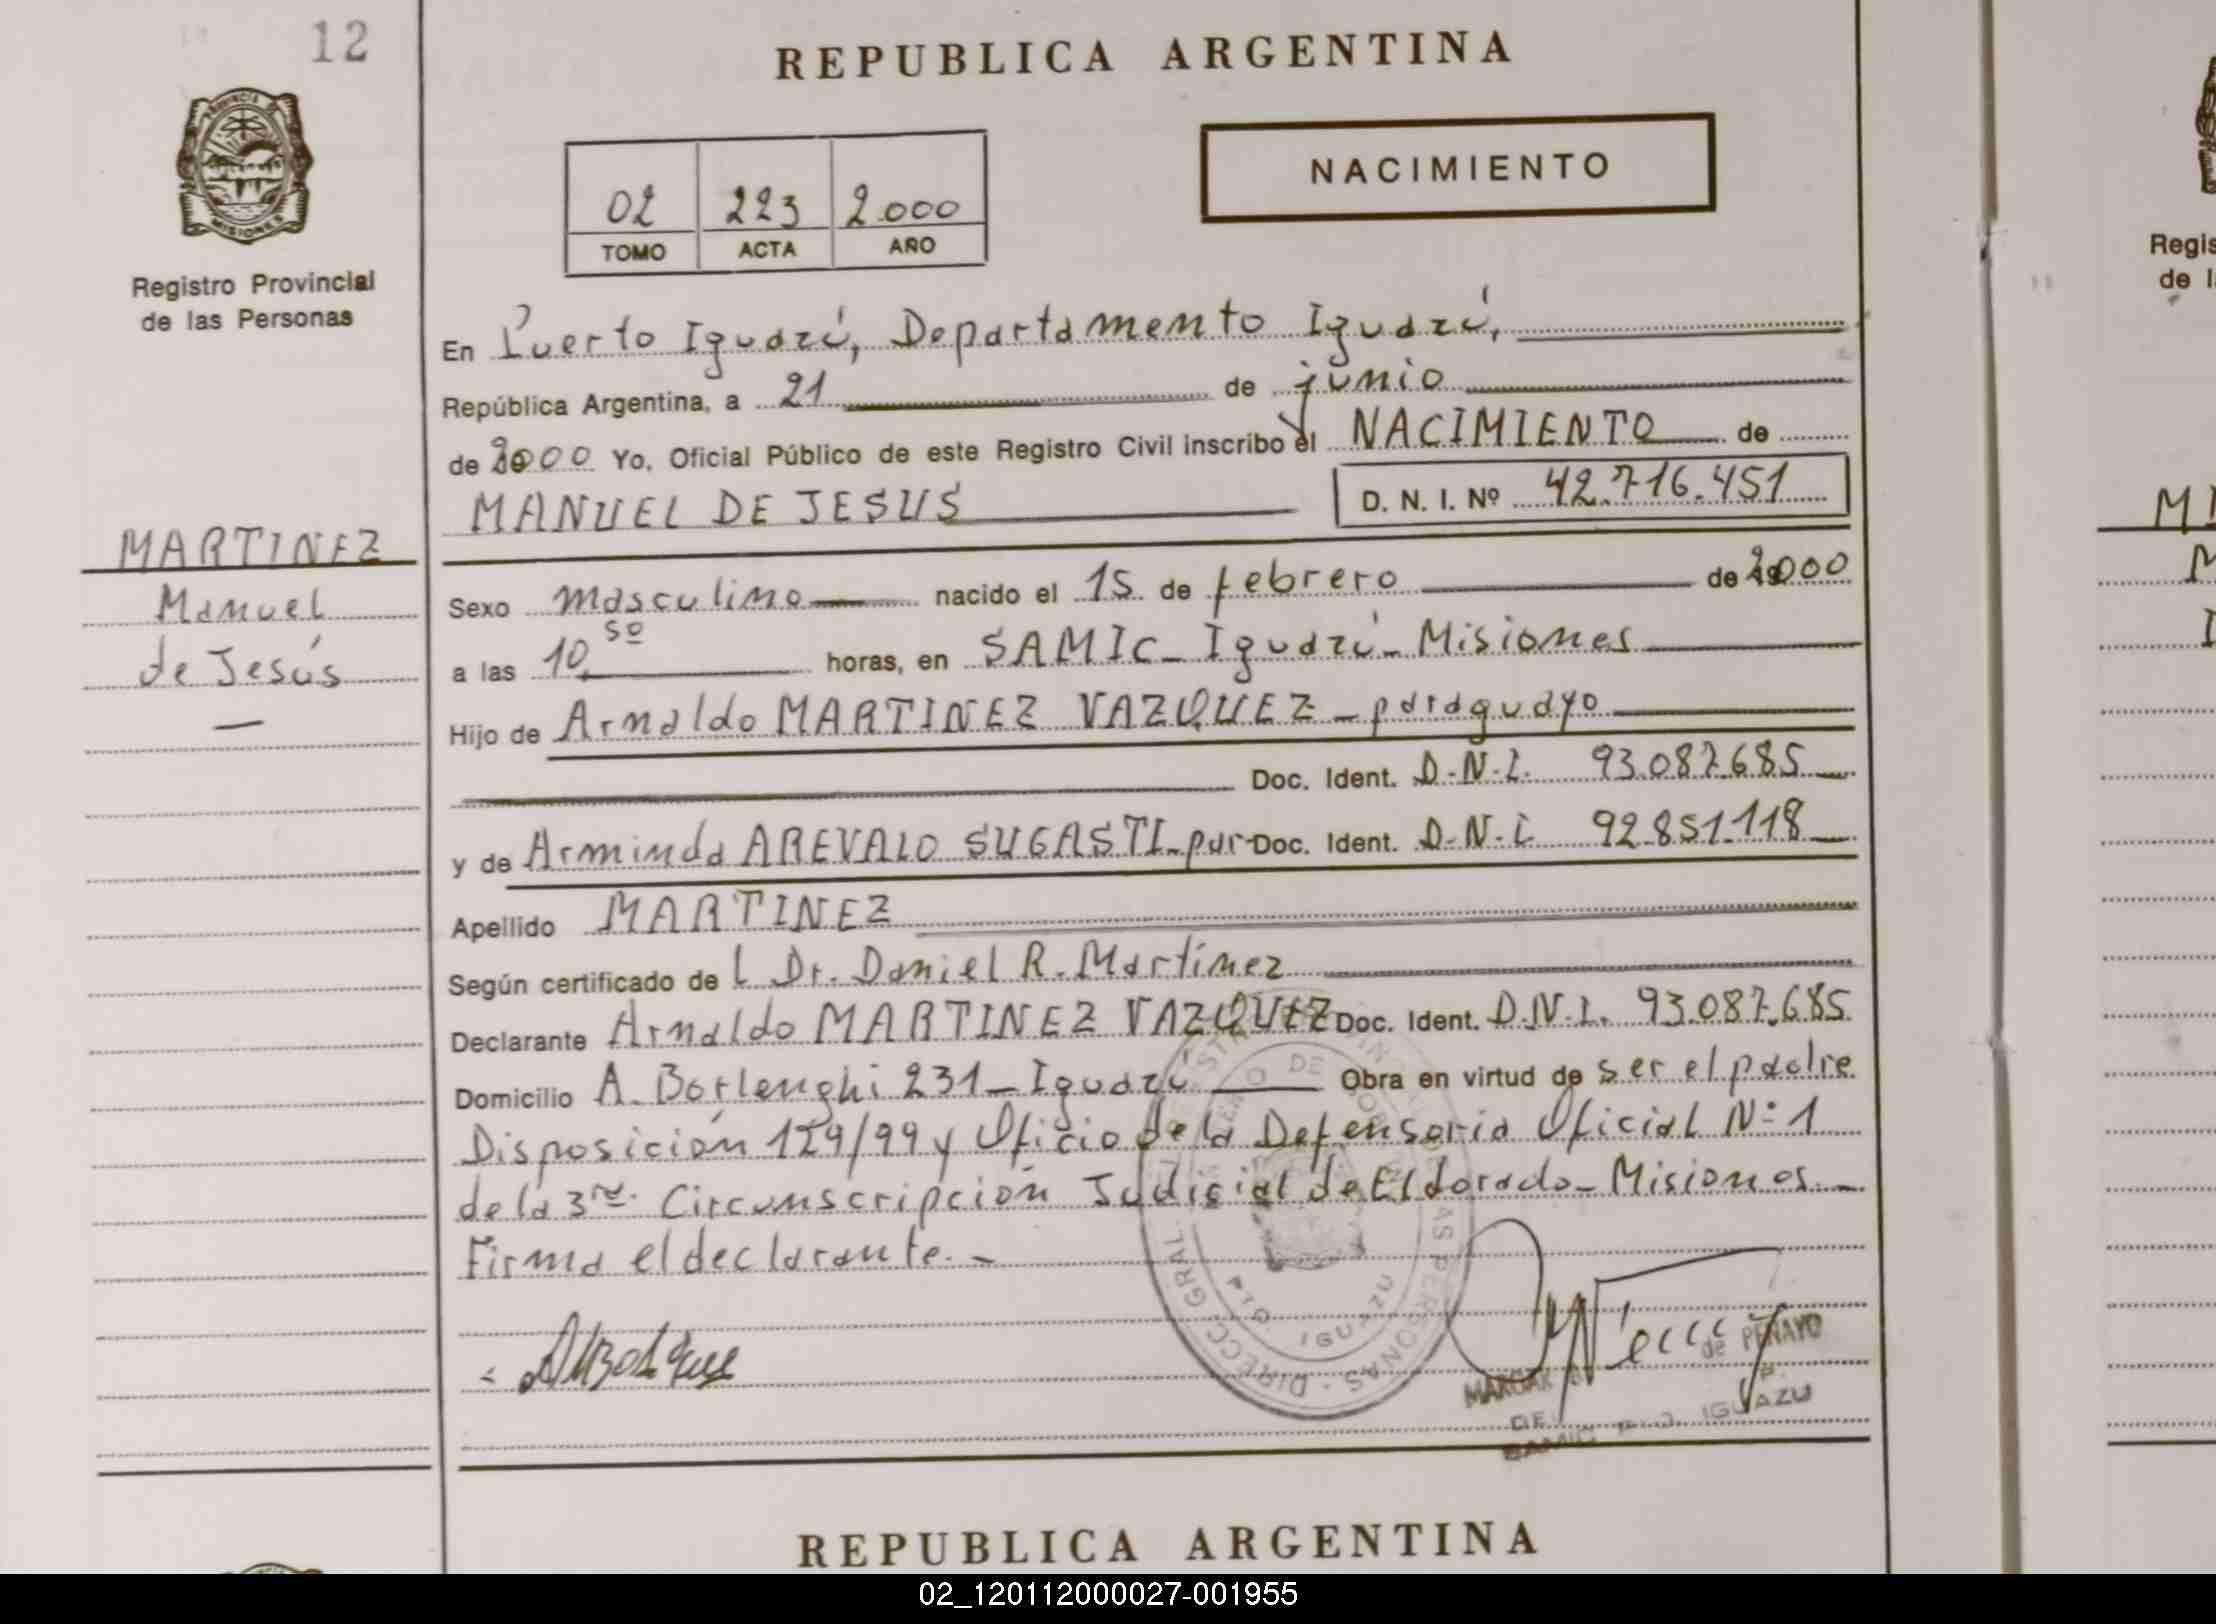 12
REPUBLICA ARGENTINA
NACIMIENTO
02 223 2.000
TOMO ACTA AÑO
PROVINCIA DE MISIONES
Registro Provincial
de las Personas
En Puerto Iguazú, Departamento Iguazú,
República Argentina, a 21 de junio
de 2000 Yo, Oficial Público de este Registro Civil inscribo el NACIMIENTO de
MANUEL DE JESUS D. N. I. Nº 42.716.451
MARTINEZ
Manuel
de Jesús
—
Sexo masculino nacido el 15 de febrero de 2000
a las 10 50 horas, en SAMIC - Iguazú - Misiones
Hijo de Arnaldo MARTINEZ VAZQUEZ - paraguayo
Doc. Ident. D.N.I. 93.087.685
y de Arminda AREVALO SUGASTI - par- Doc. Ident. D.N.I. 92.851.118
Apellido MARTINEZ
Según certificado de l Dr. Daniel R. Martínez
Declarante Arnaldo MARTINEZ VAZQUEZ Doc. Ident. D.N.I. 93.087.685
Domicilio A. Borlenghi 231 - Iguazú Obra en virtud de ser el padre
Disposición 129/99 y Oficio de la Defensoria Oficial Nº 1
de la 3ra. Circunscripción Judicial de Eldorado - Misiones. -
Firma el declarante. -
de PENAYO
IGUAZU
REPUBLICA ARGENTINA
02_120112000027-001955